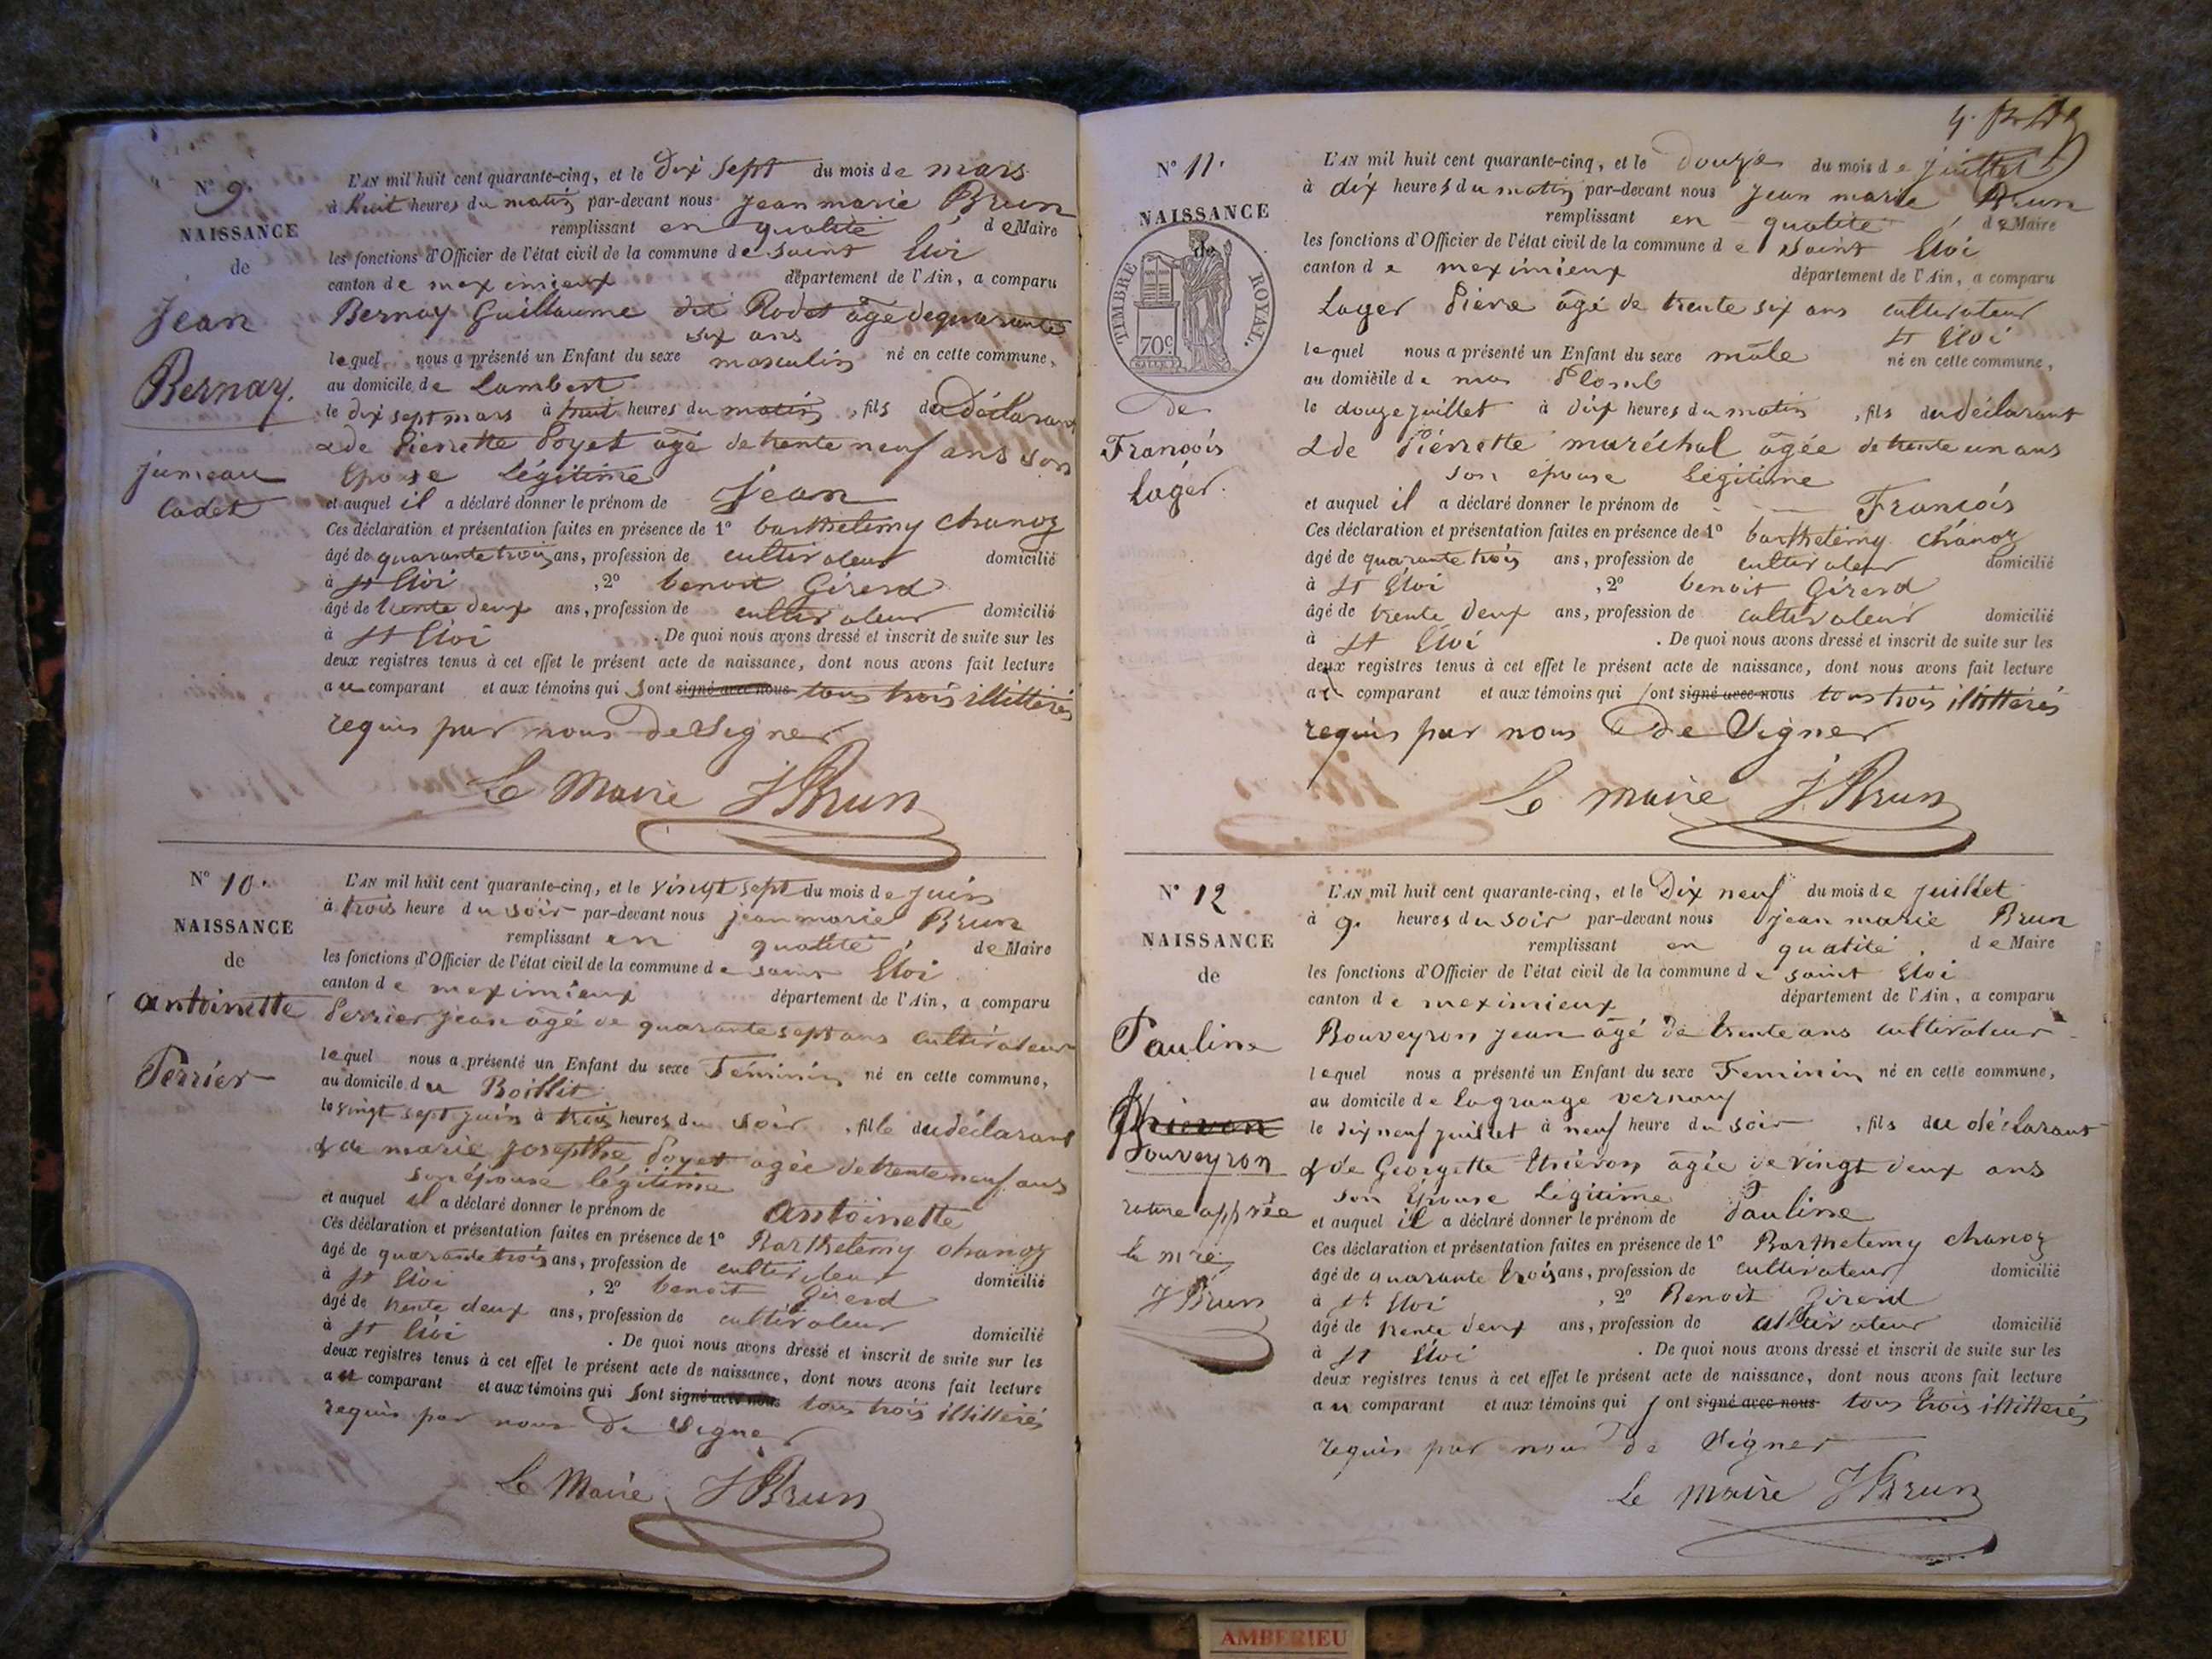 N° 9.
NAISSANCE
de
Jean
Bernay.
jumeau
Cadet
L'AN mil huit cent quarante-cinq, et le Dix sept du mois de mars
à huit heures du matin par-devant nous Jean marie Brun
remplissant en qualité de Maire
les fonctions d'Officier de l'état civil de la commune de saint Eloi
canton de meximieux département de l'Ain, a comparu
Bernay Guillaume dit Rodet âgé de quarante
six ans
lequel nous a présenté un Enfant du sexe masculin né en cette commune,
au domicile de Lambert
le dix sept mars à huit heures du matin, fils du Déclarant
& de Pierrette Poyet agé de trente neuf ans son
Epouse légitime
et auquel il a déclaré donner le prénom de Jean
Ces déclaration et présentation faites en présence de 1° barthelemy chanoz
âgé de quarante trois ans, profession de cultivateur domicilié
à St Eloi , 2° benoit Girerd
âgé de trente deux ans, profession de cultivateur domicilié
à St Eloi . De quoi nous avons dressé et inscrit de suite sur les
deux registres tenus à cet effet le présent acte de naissance, dont nous avons fait lecture
au comparant et aux témoins qui sont signé avec nous tous trois illittérés
requis par nous De Signer
Le Maire JBrun
N° 10.
NAISSANCE
de
antoinette
Perrier
L'AN mil huit cent quarante-cinq, et le vingt sept du mois de juin
à trois heure du soir par-devant nous jean marie Brun
remplissant en qualité de Maire
les fonctions d'Officier de l'état civil de la commune de saint Eloi
canton de meximieux département de l'Ain, a comparu
Perrier jean âgé de quarante sept ans cultivateur
lequel nous a présenté un Enfant du sexe Féminin né en cette commune,
au domicile du Boillit
le vingt sept juin à trois heures du soir, fille du déclarant
& de marie josepthe Poyet agée de trente neuf ans
son épouse légitime
et auquel il a déclaré donner le prénom de antoinette
Ces déclaration et présentation faites en présence de 1° Barthelemy chanoz
âgé de quarante trois ans, profession de cultivateur domicilié
à St Eloi , 2° benoit Girerd
âgé de trente deux ans, profession de cultivateur domicilié
à St Eloi . De quoi nous avons dressé et inscrit de suite sur les
deux registres tenus à cet effet le présent acte de naissance, dont nous avons fait lecture
au comparant et aux témoins qui sont signé avec nous tous trois illittérés
requis par nous De Signer
Le Maire JBrun
N° 11.
NAISSANCE
de
TIMBRE ROYAL.
70c
De
François
Lager.
L'AN mil huit cent quarante-cinq, et le douze du mois de juillet
à dix heures du matin par-devant nous Jean marie Brun
remplissant en qualité de Maire
les fonctions d'Officier de l'état civil de la commune de saint Eloi
canton de meximieux département de l'Ain, a comparu
Lager Pierre âgé de trente six ans cultivateur
St Eloi
lequel nous a présenté un Enfant du sexe mâle né en cette commune,
au domicile de mas Plomb
le douze juillet à dix heures du matin, fils du déclarant
& de Pierrette maréchal agée de trente un ans
son épouse Légitime
et auquel il a déclaré donner le prénom de François
Ces déclaration et présentation faites en présence de 1° barthelemy chanoz
âgé de quarante trois ans, profession de cultivateur domicilié
à St Eloi , 2° benoit Girerd
âgé de trente deux ans, profession de cultivateur domicilié
à St Eloi . De quoi nous avons dressé et inscrit de suite sur les
deux registres tenus à cet effet le présent acte de naissance, dont nous avons fait lecture
au comparant et aux témoins qui sont signé avec nous tous trois illittérés
requis par nous De Signer
Le maire JBrun
N° 12
NAISSANCE
de
Pauline
Thievon
Bouveyron
rature approuvée
le mre
JBrun
L'AN mil huit cent quarante-cinq, et le Dix neuf du mois de juillet
à 9. heures du soir par-devant nous jean marie Brun
remplissant en qualité de Maire
les fonctions d'Officier de l'état civil de la commune de saint Eloi
canton de meximieux département de l'Ain, a comparu
Bouveyron jean âgé de trente ans cultivateur
lequel nous a présenté un Enfant du sexe Feminin né en cette commune,
au domicile de Lagrange vernay
le dix neuf juillet à neuf heure du soir, fils du déclarant
& de Georgette thiévon âgée de vingt deux ans
son Epouse Légitime
et auquel il a déclaré donner le prénom de Pauline
Ces déclaration et présentation faites en présence de 1° Barthelemy chanoz
âgé de quarante trois ans, profession de cultivateur domicilié
à St Eloi , 2° Benoit Girerd
âgé de trente deux ans, profession de cultivateur domicilié
à St Eloi . De quoi nous avons dressé et inscrit de suite sur les
deux registres tenus à cet effet le présent acte de naissance, dont nous avons fait lecture
au comparant et aux témoins qui sont signé avec nous tous trois illittérés
requis par nous de Signer
Le maire JBrun
AMBERIEU